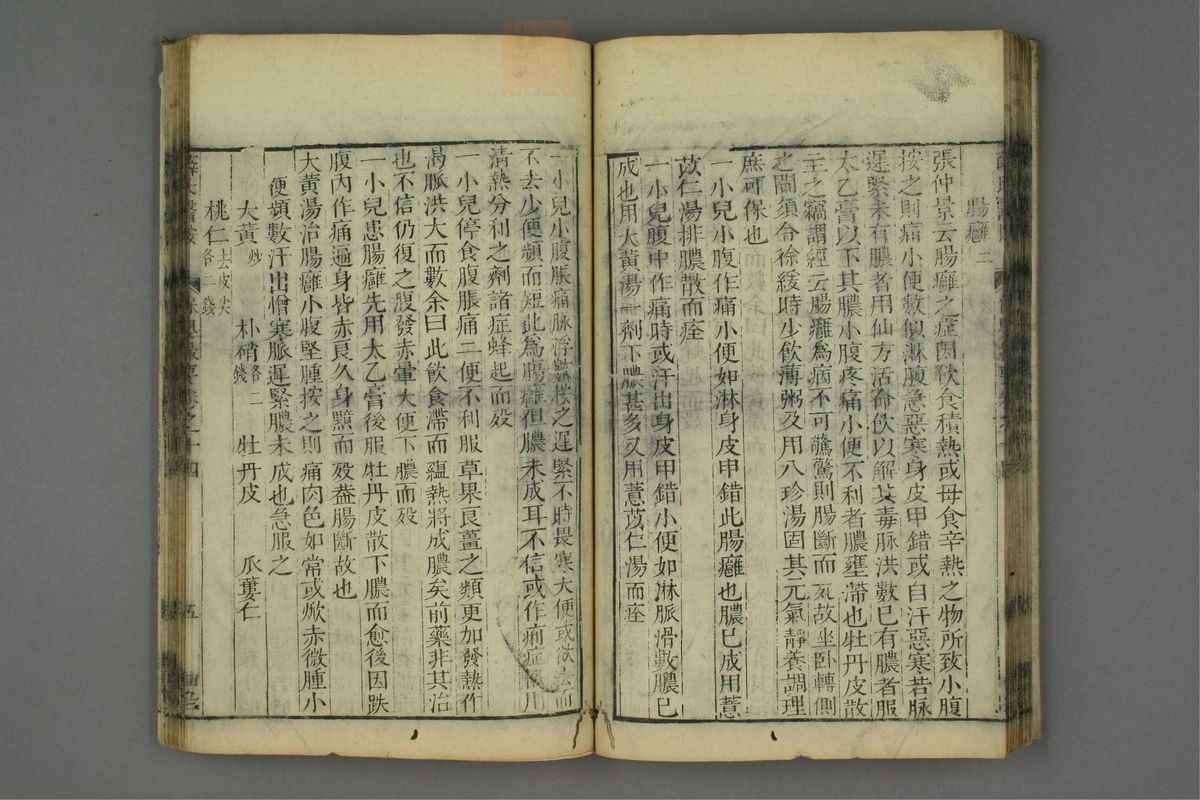 腸癰二
張仲景云腸癰之症因飲食積熱或母食辛熱之物所致小腹
按之則痛小便數似淋腹急惡寒身皮甲錯或自汗惡寒若脉
遲緊未有膿者用仙方活命飲以解其毒脉洪數已有膿者服
太乙膏以下其膿小腹疼痛小便不利者膿壅滯也牡丹皮散
主之竊謂經云腸癰為病不可驚驚則腸斷而死故坐卧轉側
之間須令徐緩時少飲薄粥及用八珍湯固其元氣靜養調理
庶可保也
一小兒小腹作痛小便如淋身皮甲錯此腸癰也膿已成用薏
苡仁湯排膿散而痊
一小兒腹中作痛時或汗出身皮甲錯小便如淋脈滑數膿已
成也用大黄湯一劑下膿甚多又用薏苡仁湯而痊
一小兒小腹脹痛脉浮數按之遲緊不時畏寒大便或欲去而
不去少便頻而短此為腸癰但膿未成耳不信或作痢症用
清熱分利之劑諸症蜂起而歿
一小兒停食腹脹痛二便不利服草果良薑之類更加發熱作
渴脈洪大而數余曰此飲食滯而蘊熱將成膿矣前藥非其治
也不信仍復之腹發赤暈大便下膿而歿
一小兒患腸癰先用太乙膏後服牡丹皮散下膿而愈後因跌
腹内作痛遍身皆赤良久身黯而歿葢腸斷故也
大黄湯治腸癰小腹堅腫按之則痛肉色如常或焮赤微腫小
便頻數汗出憎寒脈遲緊膿未成也急服之
大黄炒 朴硝各二錢 牡丹皮 瓜蔞仁
桃仁去皮尖各二錢
卷之十四
五